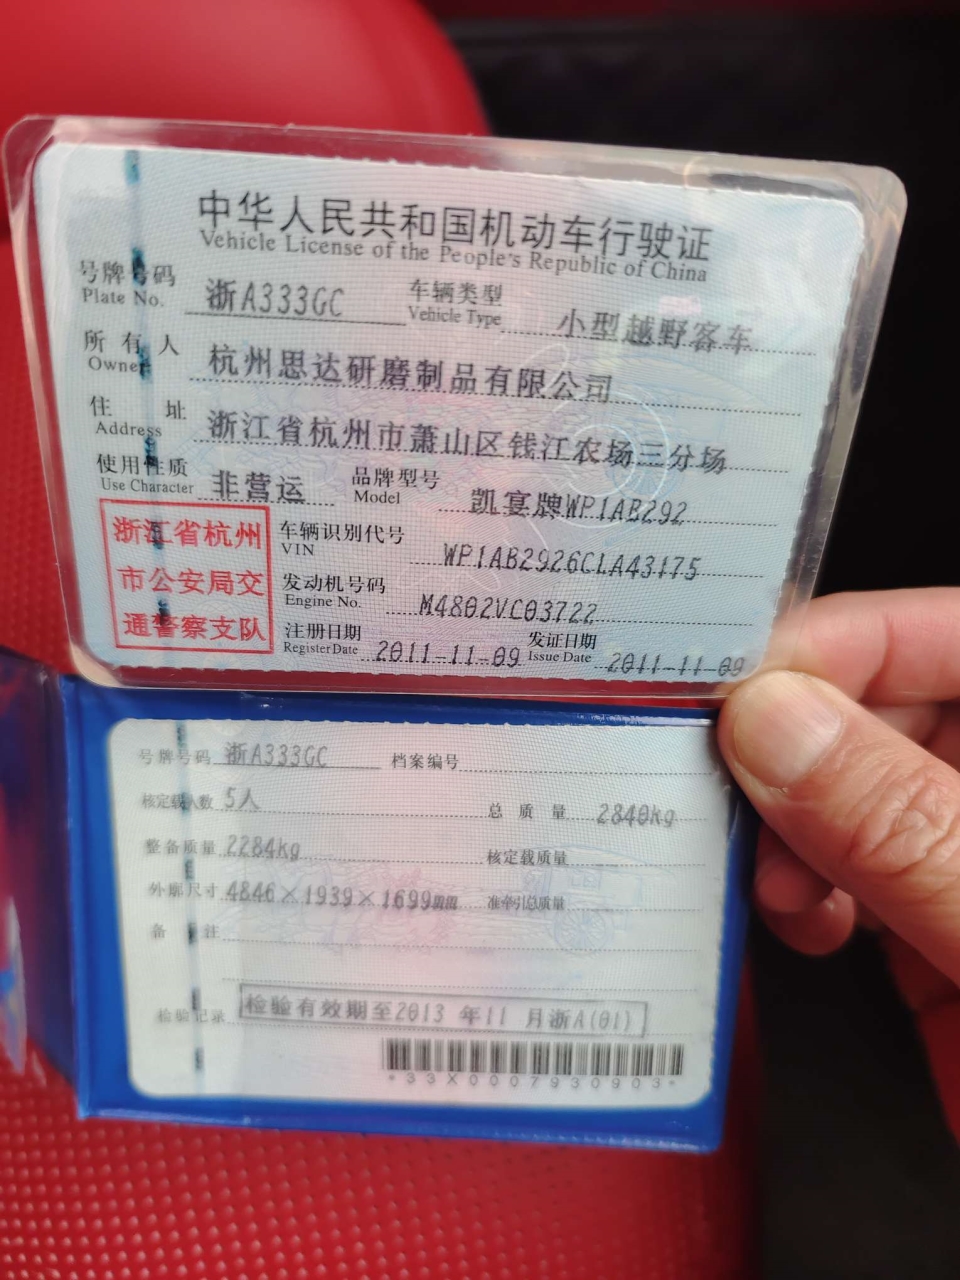 中华人民共和国机动车行驶证
Vehicle License of the People's Republic of China
号牌号码 浙A333GC 车辆类型 小型越野客车
Plate No. Vehicle Type
所有人 杭州思达研磨制品有限公司
Owner
住址 浙江省杭州市萧山区钱江农场三分场
Address
使用性质 非营运 品牌型号 凯宴牌WP1AB292
Use Character Model
浙江省杭州
市公安局交
通警察支队
车辆识别代号 WP1AB2926CLA43175
VIN
发动机号码 M4802VC03722
Engine No.
注册日期 2011-11-09 发证日期 2011-11-09
Register Date Issue Date
号牌号码 浙A333GC 档案编号
核定载人数 5人 总质量 2840kg
整备质量 2284kg 核定载质量
外廓尺寸 4846×1939×1699mm 准牵引总质量
备注
检验记录 检验有效期至2013 年11 月浙A(01)
*33X0007930903*